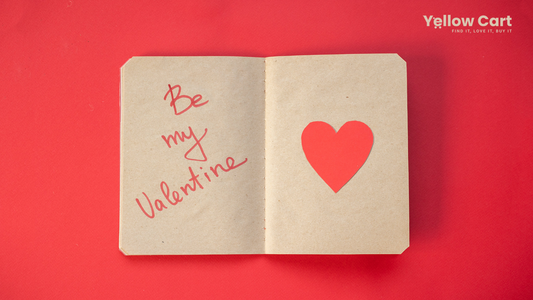 Yellow Cart
FIND IT, LOVE IT, BUY IT
Be
my
Valentine